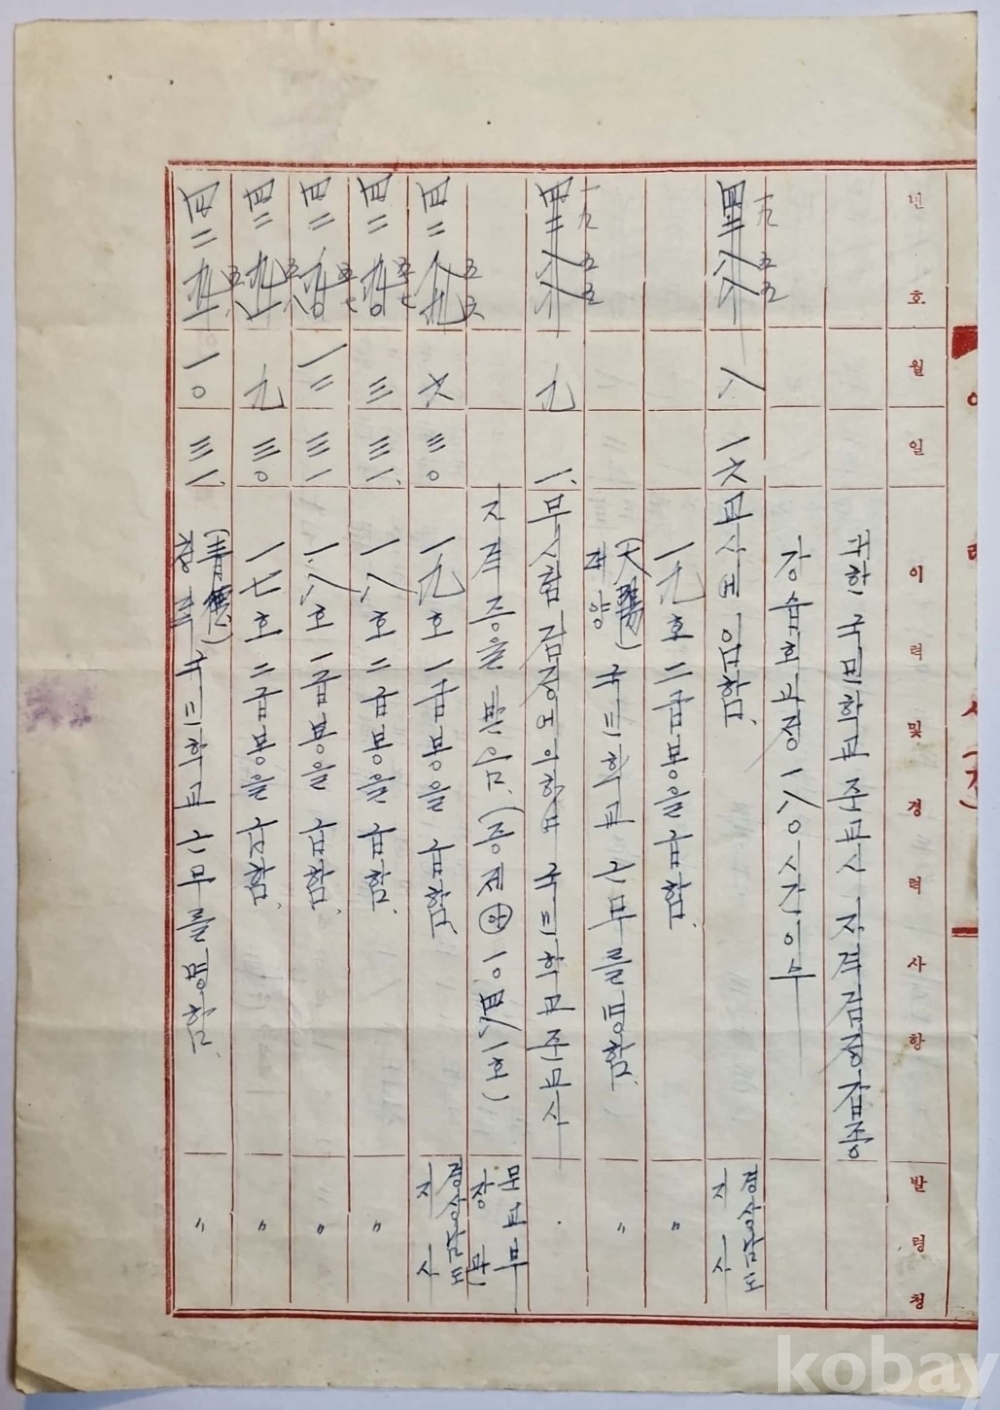 년 호 월 일 이 력 및 경 력 사 항 발 령 청
대한 국민학교 준교사 자격검정갑종
강습회 교정 一八〇시간 이수
四二八八 一九五五 八 一六 교사에 임함. 경상남도지사
一九호 二급봉을 급함. 〃
(大陽) 대양 국민학교 근무를 명함. 〃
四二八八 一九五五 九 一. 무시험 검정에 의하여 국민학교 준교사
자격증을 받음. (증제 一〇四八一호) 문교부장관
四二 六 三〇 一九호 一급봉을 급함. 경상남도지사
四二 三 三一. 一八호 二급봉을 급함. 〃
四二 一二 三一 一八호 一급봉을 급함. 〃
四二 九 三〇 一七호 二급봉을 급함. 〃
四二 一〇 三一. (青德) 청덕 국민학교 근무를 명함. 〃
kobay